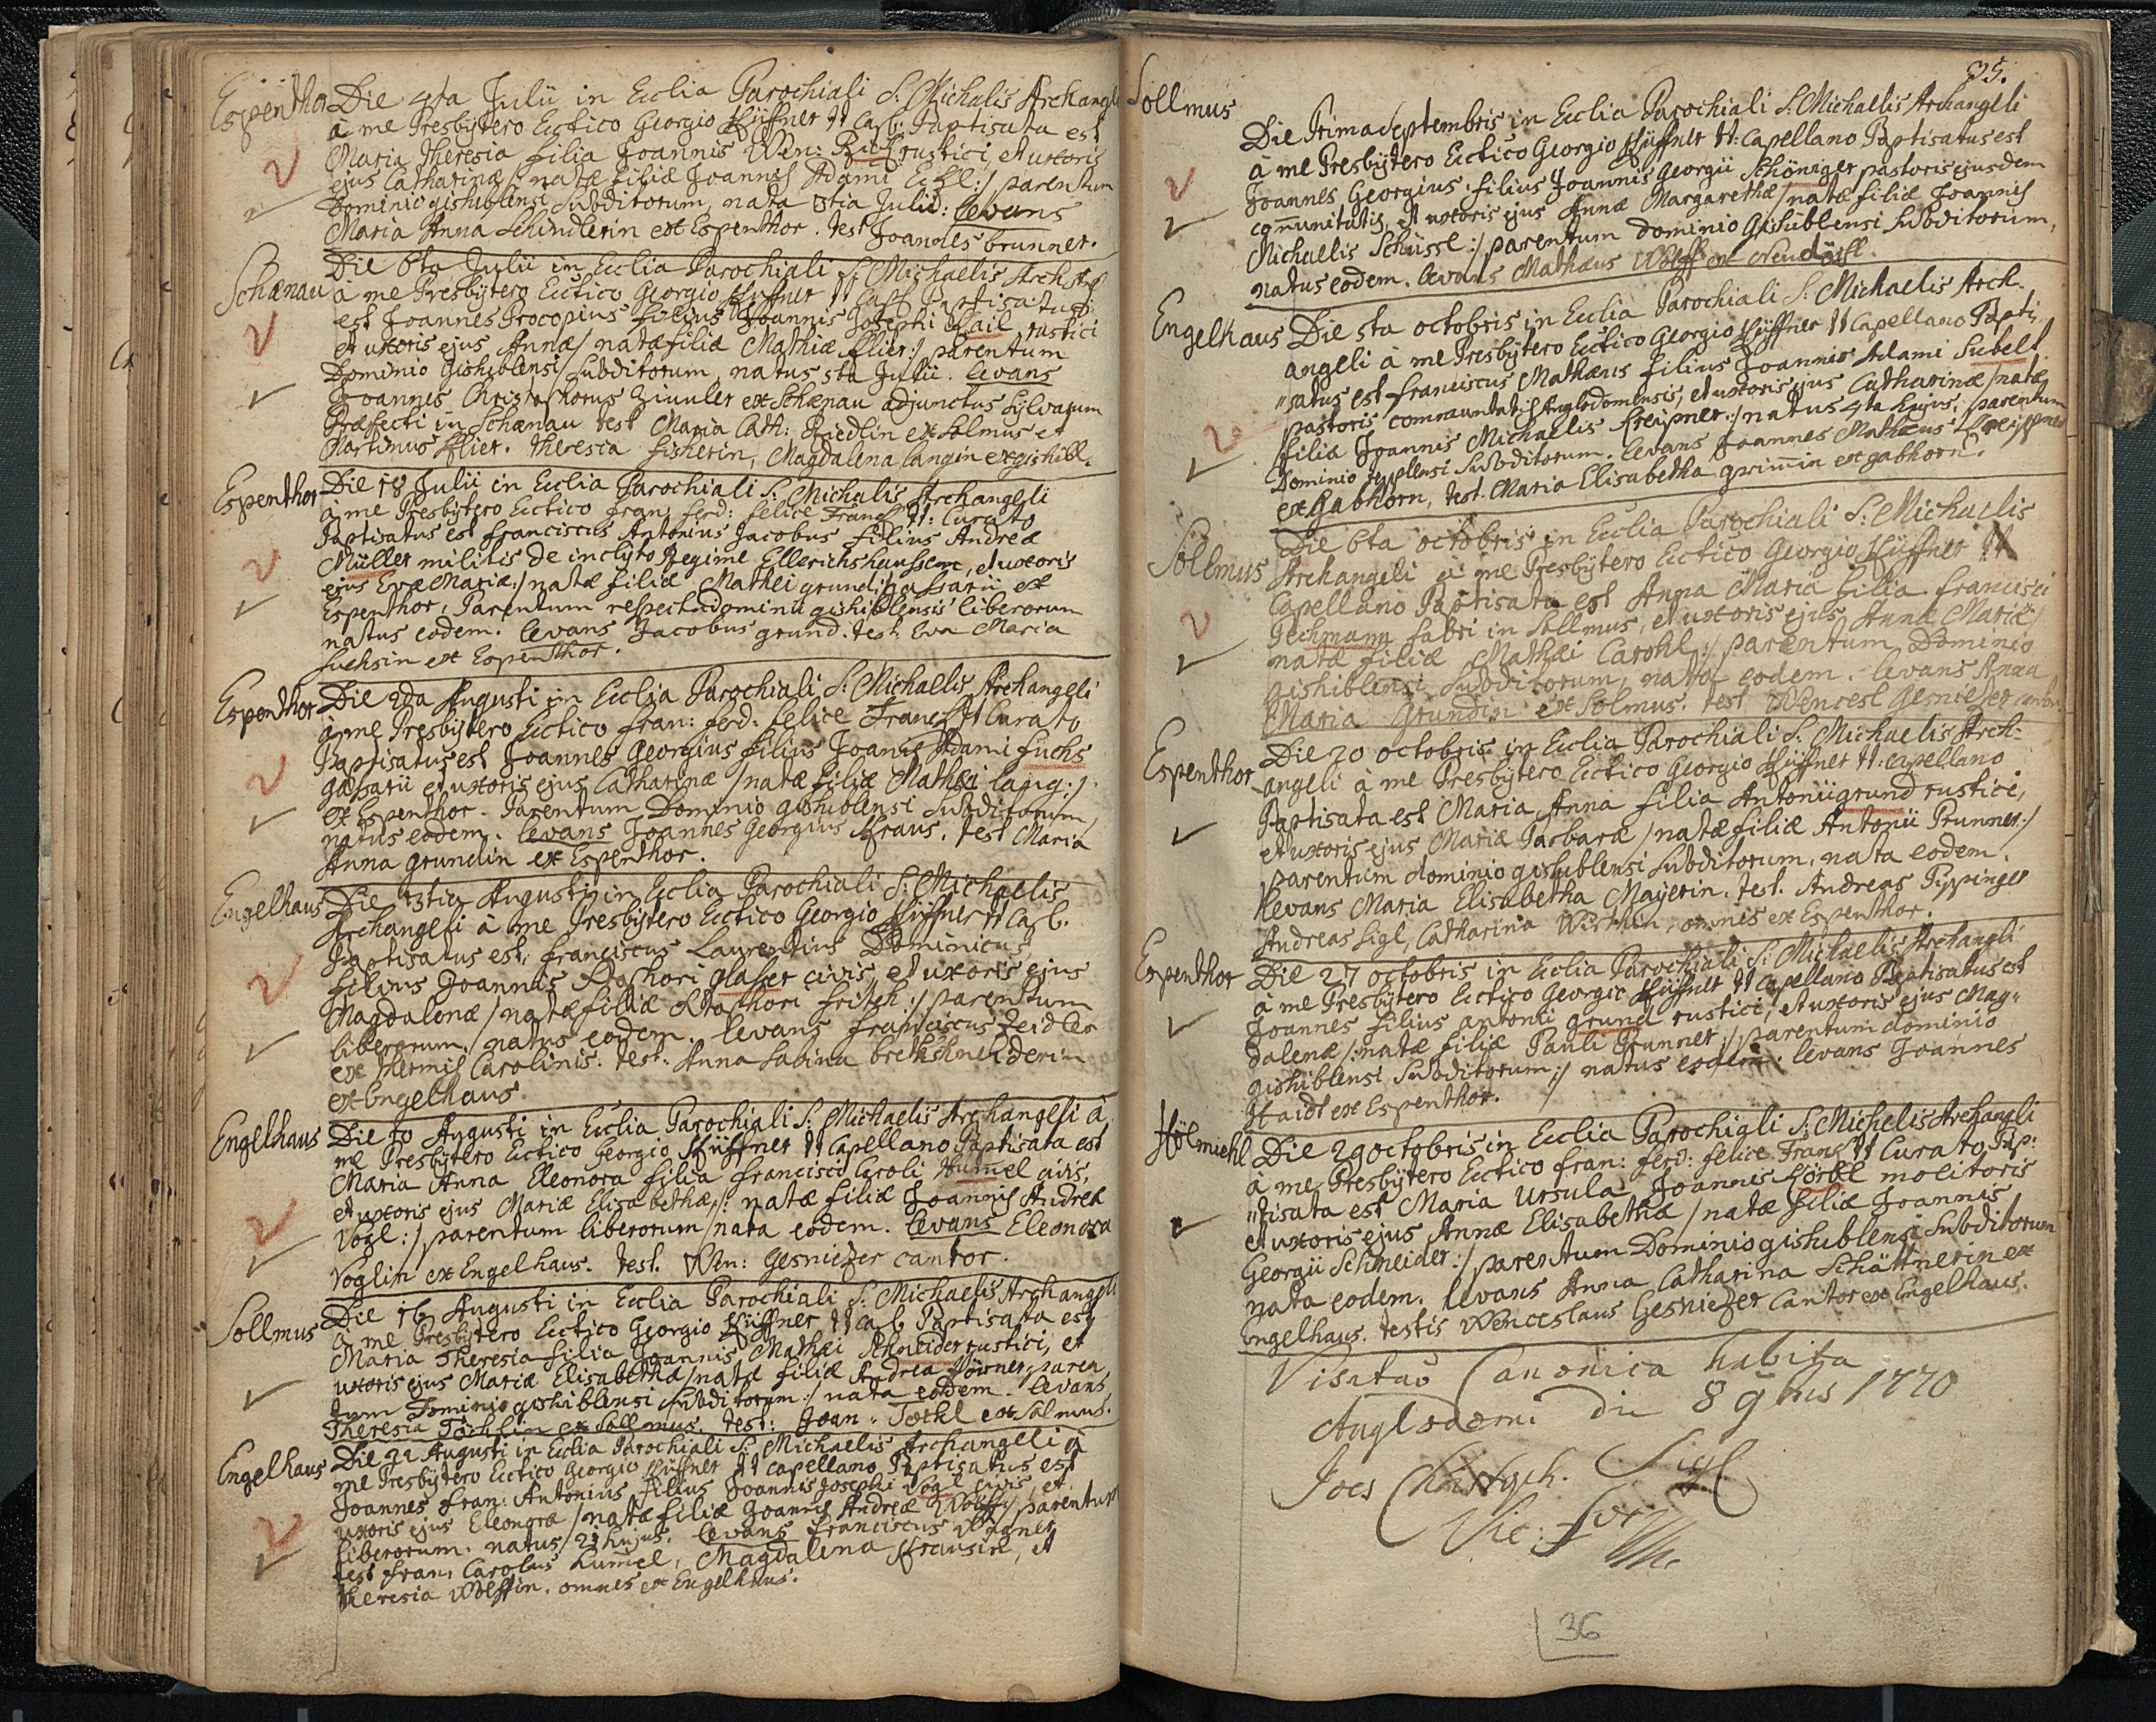 Espenthor Die 4ta Julii in Ecclia Parochiali S: Michalis Archangeli
à me Presbytero Ectico Georgio Hüffner tt Cap: Baptisata est
Maria Theresia filia Joannis Wen: rustici, et uxoris
ejus Catharinæ / natæ filiæ Joannis Adami Eckl :/ parentum
Dominio gishiblensi Subditorum, nata 3tia Julii: levans
Maria Anna Schindlerin ex Espenthor. test Joannes brunner.
Schænau Die 6ta Julii in Ecclia Parochiali S: Michaelis Arch
à me Presbytero Ectico Georgio Hüffner tt Cap Baptisatus
est Joannes Procopius filius Joannis Josephi Bail rustici
et uxoris ejus Annæ / natæ filiæ Mathiæ flier :/ parentum
Dominio Gishiblensi Subditorum, natus 5ta Julii. levans
Joannes Christophorus Zimler ex Schænau adjunctus Sylvarum
Præfecti in Schænau test Maria Cath: Friedlin ex Solmus et
Martinus flier. Theresia fisherin, Magdalena langin ex gishibl.
Espenthor Die 18 Julii in Ecclia Parochiali S: Michalis Archangeli
à me Presbytero Ectico fran: ferd: felice Franck tt: Curato
Baptisatus est franciscus Antonius Jacobus filius Andreæ
Müller militis de inclyto Regime Ellerichshaussen, et uxoris
ejus Evæ Mariæ :/ natæ filiæ Mathei grund gassarii ex
Espenthor, Parentum respectu dominii gishiblensis liberorum
natus eodem. levans Jacobus grund. test. Eva Maria
fuchsin ex Espenthor.
Espenthor Die 2da Augusti in Ecclia Parochiali S: Michaelis Archangeli
à me Presbytero Ectico fran: ferd: felice Franck tt Curato
Baptisatus est Joannes Georgius filius Joanis Adami fuchs
gassarii et uxoris ejus Catharinæ / natæ filiæ Mathæi lang :/
ex Espenthor. Parentum Dominio gishiblensi Subditorum,
natus eodem. levans Joannes Georgius Kraus. test Maria
Anna grundin ex Espenthor.
Engelhaus Die 3tia Augusti in Ecclia Parochiali S: Michaelis
Archangeli à me Presbytero Ectico Georgio Hüffner tt Cap.
Baptisatus est, franciscus Laurentius Dominicus
filius Joannis glaser civis, et uxoris ejus
Magdalenæ / natæ filiæ fritsch :/ parentum
liberorum. natus eodem. levans franciscus Zeidler
ex thermis Carolinis. test: Anna Sabina bretschneiderin
ex Engelhaus.
Engelhaus Die 10 Augusti in Ecclia Parochiali S: Michaelis Archangeli à
me Presbytero Ectico Georgio Hüffner tt Capellano Baptisata est
Maria Anna Eleonora filia francisci Caroli Humel civis,
et uxoris ejus Mariæ Elisabethæ /: natæ filiæ Joannis Andreæ
Vogl :/ parentum liberorum / nata eodem. levans Eleonora
Voglin ex Engelhaus. test. Wen: Gesniezer cantor.
Sollmus Die 16 Augusti in Ecclia Parochiali S: Michaelis Archangeli
à me Presbytero Ectico Georgio Hüffner tt Cap Baptisata est
Maria Theresia filia Joannis Mathæi Schneider rustici, et
uxoris ejus Mariæ Elisabethæ / natæ filiæ Andreæ paren
tum Dominio gishiblensi Subditorum :/ nata eodem. levans
Theresia Töchlin ex Sollmus. test: Joan. ex Solmus.
Engelhaus Die 22 Augusti in Ecclia Parochiali S: Michaelis Archangeli à
me Presbytero Ectico Georgio Hüffner tt Capellano Baptisatus est
Joannes fran: Antonius filius Joannis Josephi Vogl civis, et
uxoris ejus Eleonoræ / natæ filiæ Joannis Andreæ Wolff :/ parentum
liberorum. natus 21 hujus. levans franciscus Wagner
test fran: Carolus Humel, Magdalena Krausin, et
Theresia Wolffin. omnes ex Engelhaus.
35.
Sollmus Die Prima Septembris in Ecclia Parochiali S: Michaelis Archangeli
à me Presbytero Ectico Georgio Hüffner tt: Capellano Baptisatus est
Joannes Georgius filius Joannis Georgii Schöniger pastoris ejusdem
com̄unitatis, et uxoris ejus Annæ Margarethæ / natæ filiæ Joannis
Michaelis Schüssl :/ parentum dominio Gishüblensi Subditorum,
natus eodem. levans Mathæus Wolff ex Neudörffl.
Engelhaus Die 5ta octobris in Ecclia Parochiali S: Michaelis Arch-
angeli à me Presbytero Ectico Georgio Hüffner tt Capellano Bapti,
"satus est franciscus Mathæus filius Joannis Adami Subelt
pastoris communtatis Anglodomensis, et uxoris ejus Catharinæ / natæ
filiæ Joannis Michaelis Kreipner :/ natus 4ta hujus, parentum
Dominio tepplensi Subditorum. levans Joannes Mathæus Kreippner
ex Gabhorn, test. Maria Elisabetha grim̄in ex gabhorn.
Sollmus Die 6ta octobris in Ecclia Parochiali S: Michaelis
Archangeli à me Presbytero Ectico Georgio Hüffner tt
Capellano Baptisata est Anna Maria filia francisci
Pechmann fabri in Sollmus, et uxoris ejus Annæ Mariæ /
natæ filiæ Mathæi Carohl :/ parentum Dominio
gishiblensi Subditorum, nata eodem. levans Anna
Maria Grundin ex Solmus. test Wencesl Gesniezer cantor
Espenthor Die 20 octobris in Ecclia Parochiali S: Michaelis Arch-
angeli à me Presbytero Ectico Georgio Hüffner tt: capellano
Baptisata est Maria Anna filia Antonii grund rustici,
et uxoris ejus Mariæ Barbaræ / natæ filiæ Antonii Prunner :/
parentum dominio gishublensi Subditorum, nata eodem.
levans Maria Elisabetha Mayerin. test. Andreas Pippinger
Andreas Sigl, Catharina Würthin, omnes ex Espenthor.
Espenthor Die 27 octobris in Ecclia Parochiali S: Michaelis Archangli
à me Presbytero Ectico Georgio Hüffner tt Capellano Baptisatus est
Joannes filius antonii grund rustici, et uxoris ejus Mag"
dalenæ /: natæ filiæ Pauli Prunner :/ parentum dominio
gishiblensi Subditorum :/ natus eodem: levans Joannes
Haidl ex Espenthor.
Hölmiehl Die 29 octobris in Ecclia Parochiali S: Michelis Archangli
à me Presbytero Ectico fran: ferd: felice Franck tt Curato Bap:
"tisata est Maria Ursula Joannis Körbl molitoris
et uxoris ejus Annæ Elisabethæ / natæ filiæ Joannis
Georgii Schneider :/ parentum Dominio gishiblensi Subditorum
nata eodem. levans Anna Catharina Schättnerin ex
Engelhaus. testis Wenceslaus Gesniezer Cantor ex Engelhaus.
Visitatio Canonica habita
Anglodomi die 8 9bris 1770
Joes Christoph. Sigl
Vic: for
36